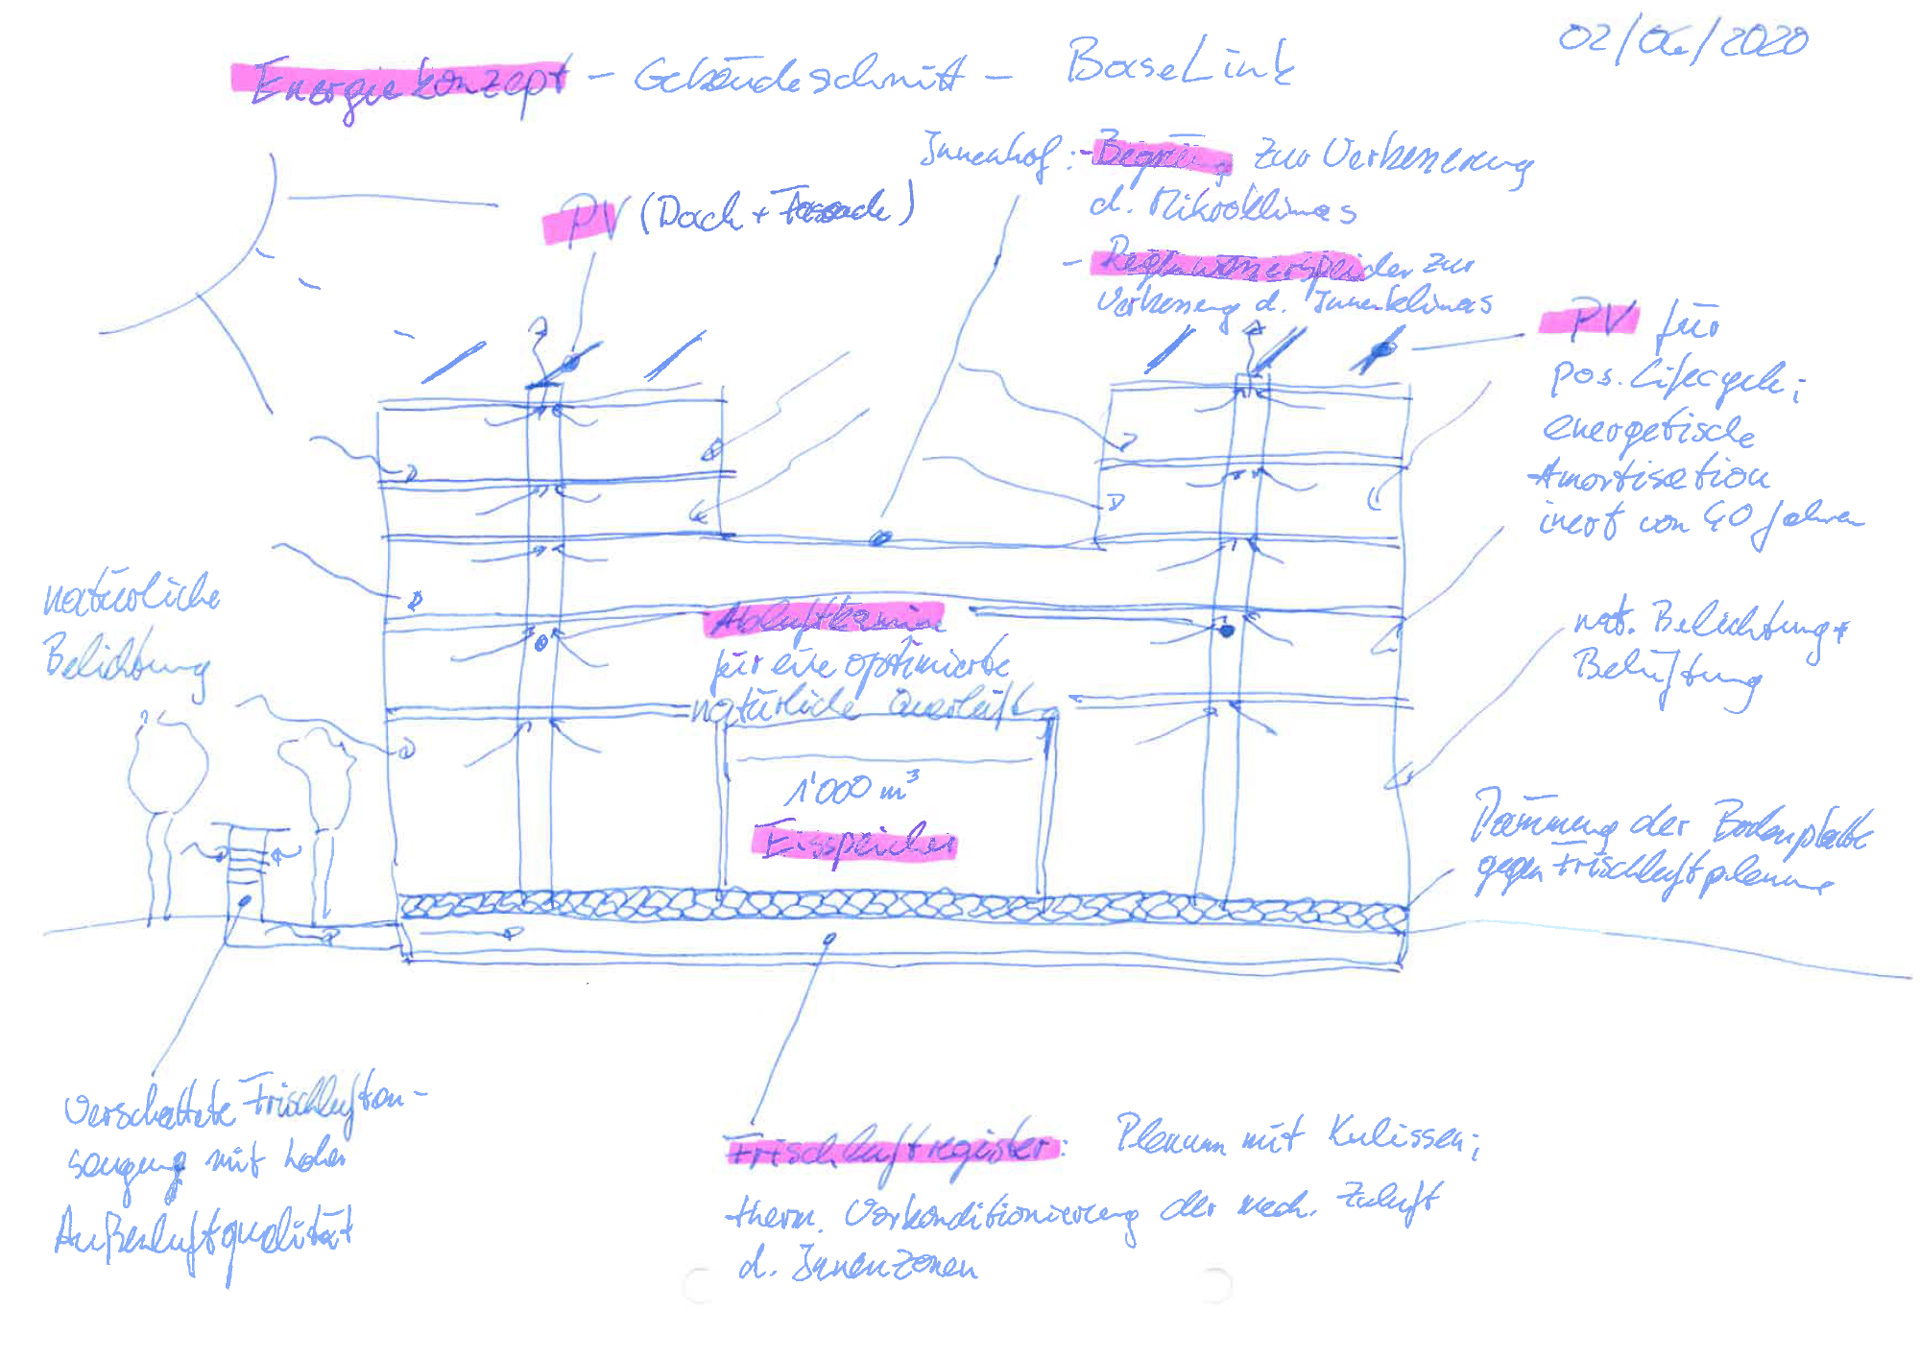 02/06/2020
Energiekonzept - Gebäudeschnitt - BaseLink
Innenhof: - Begrünung zur Verbesserung
d. Mikroklimas
- Regenwasserspeicher zur
Verbesserung d. Innenklimas
PV (Dach + Fassade)
PV für
pos. Lifecycle;
energetische
Amortisation
inert von 40 Jahren
natürliche
Belichtung
Abluftkamine
für eine optimierte
natürliche Querlüft.
nat. Belichtung +
Belüftung
1'000 m³
Eisspeicher
Dämmung der Bodenplatte
gegen Frischluftplenum
Verschattete Frischluftan-
saugung mit hoher
Außenluftqualität
Frischluftregister: Plenum mit Kulissen;
therm. Vorkonditionierung der mech. Zuluft
d. Innenzonen